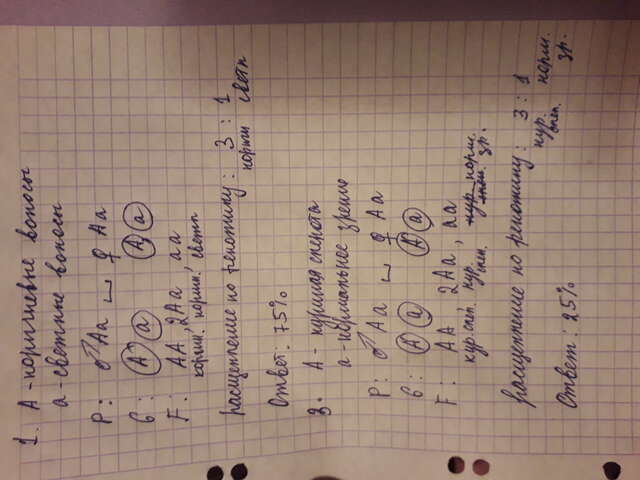 1. А - коричневые волосы
а - светлые волосы
Р: ♂ Аа ⌴ ♀ Аа
G: А а А, а
F: АА, 2Аа, аа
коричн. коричн. светл
расщепление по фенотипу: 3 : 1
коричн светл
Ответ: 75%
3. А - куриная слепота
а - нормальное зрение
Р: ♂ Аа ⌴ ♀ Аа
G: А а А а
F: АА, 2Аа, аа
кур. слеп. кур. слеп. норм. зр.
расщепление по фенотипу: 3 : 1
кур. слеп. норм. зр.
Ответ: 25%